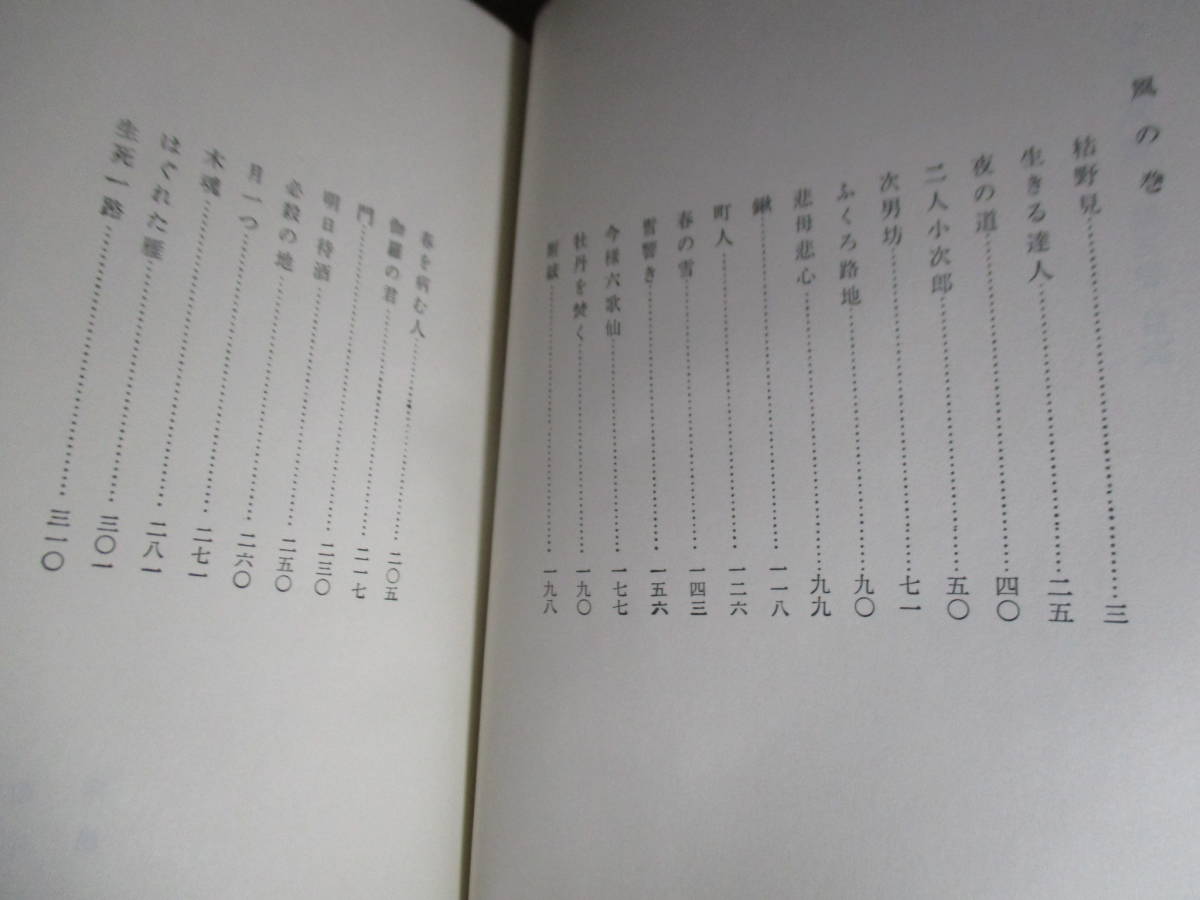 風の巻
枯野見……三
生きる達人……二五
夜の道……四〇
二人小次郎……五〇
次男坊……七一
ふくろ路地……九〇
悲母悲心……九九
鍬……一一八
町人……一二六
春の雪……一四三
雪響き……一五六
今様六歌仙……一七七
牡丹を焚く……一九〇
断絃……一九八
春を病む人……二〇五
伽羅の君……二一七
門……二三〇
明日待酒……二三〇
必殺の地……二五〇
月一つ……二六〇
木魂……二七一
はぐれた雁……二八一
生死一路……三〇一
三一〇